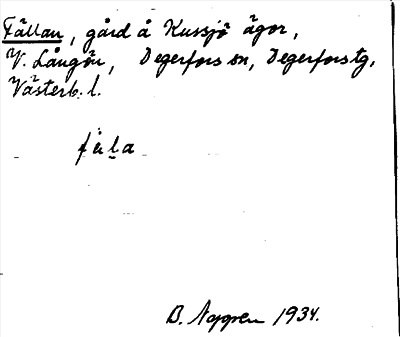 Fällan, gård å Kussjö ägor,
V. Långön, Degerfors sn, Degerfors tg,
Västerb. l.
fäla
B. Nygren 1934.